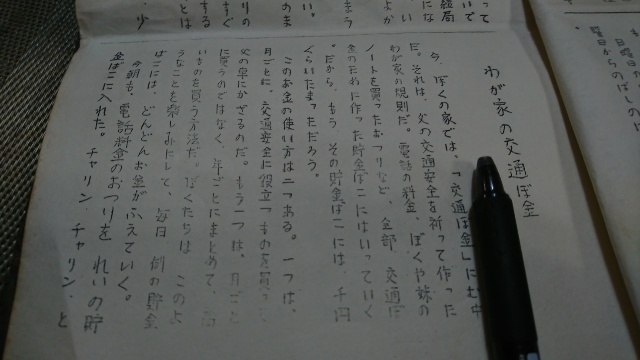 わが家の交通ぼ金
今、ぼくの家では、「交通ぼ金」にむ中
だ。それは、父の交通安全を祈って作った
わが家の規則だ。電話の料金、ぼくや妹の
ノートを買ったおつりなど、全部、交通ぼ
金のために作った貯金ばこにはいっていく
。だから、もう その貯金ばこには、千円
ぐらいたまっただろう。
このお金の使い方は二つある。一つは、
月ごとに、交通安全に役立つものを買って
父の車にかざるのだ。もう一つは、月ごと
に買うのではなく、年ごとにまとめて、
いものを買う方法だ。ぼくたちは このよ
うなことを楽しみにして、毎日 例の貯金
ばこには、どんどんお金がふえていく。
今朝も、電話料金のおつりを れいの貯
金ばこに入れた。チャリン チャリン と